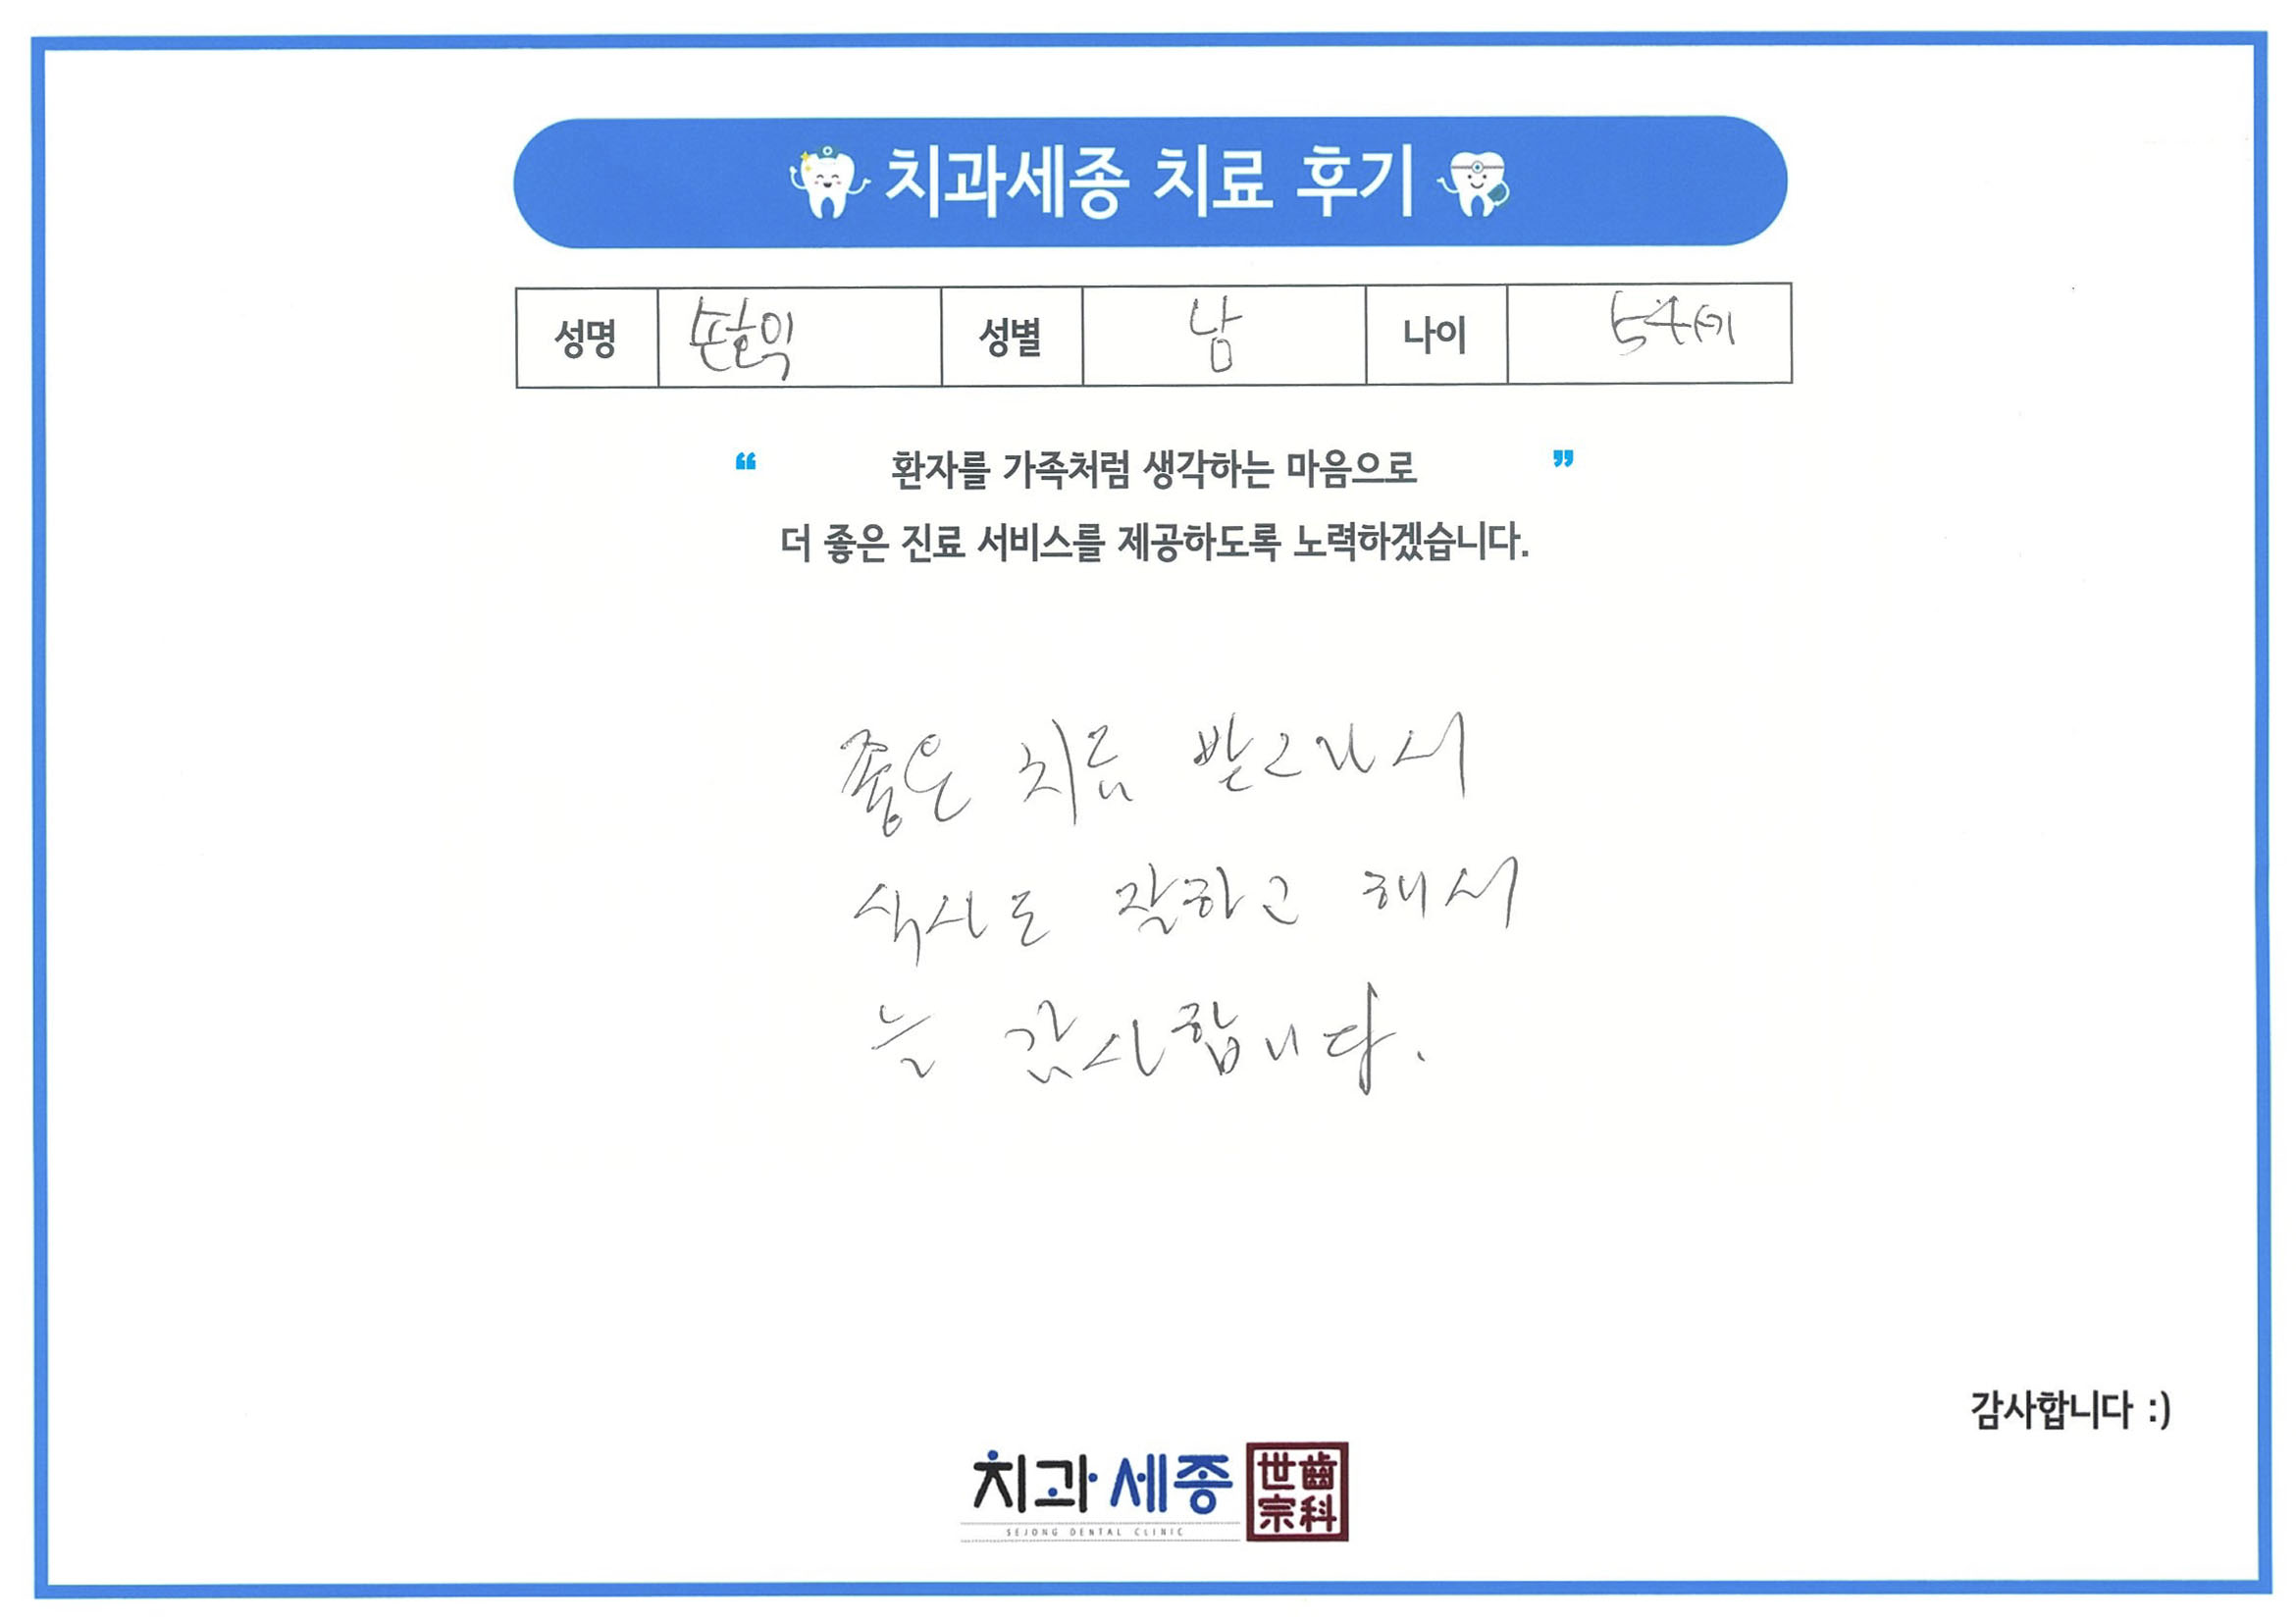 치과세종 치료 후기
성명 손달익 성별 남 나이 54세
“ 환자를 가족처럼 생각하는 마음으로 ”
더 좋은 진료 서비스를 제공하도록 노력하겠습니다.
좋은 치료 받고나서
식사도 잘하고 해서
늘 감사합니다.
감사합니다 :)
치과세종 世齒
宗科
SEJONG DENTAL CLINIC